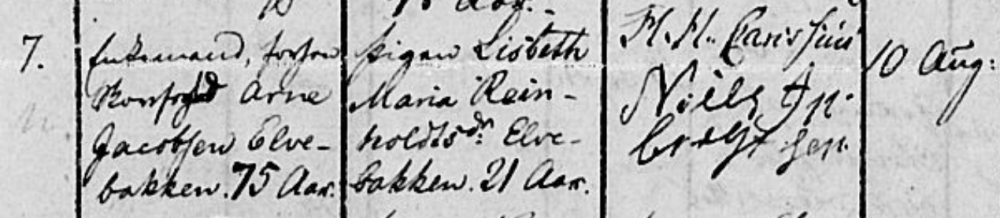 15 Aar.
7.
Enkemand, forhen
Arne
Jacobsen Elve-
bakken. 75 Aar.
Pigen Lisbeth
Maria Rein-
holdtsdr. Elve-
bakken. 21 Aar.
H. H. Carissius
Niels In-
brigt sen.
10 Aug: